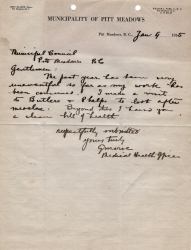 MUNICIPALITY OF PITT MEADOWS
Pitt Meadows, B.C., Jan 9 1935
Municipal Council
Pitt Meadows B.C
Gentlemen
The past year has been very
uneventful so far as my work has
been concerned. I made a visit
to Butlers & Phelps to look after
measles. Beyond this I have you
a clean bill of health
respectfully submitted
yours truly
Medical Health Officer